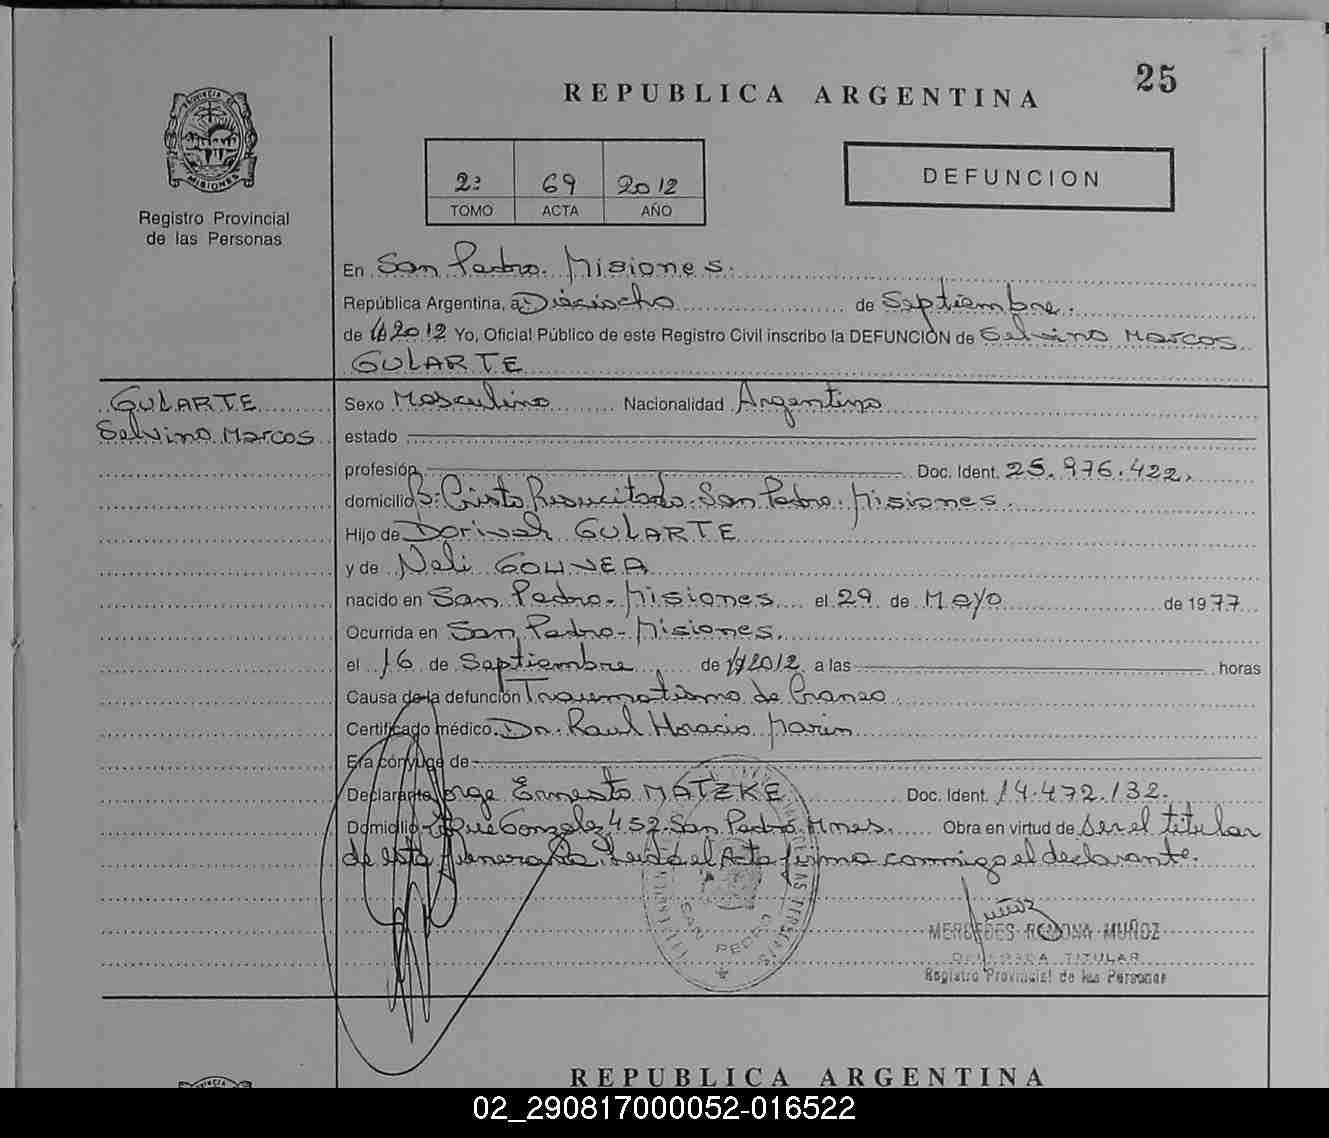 25
REPUBLICA ARGENTINA
PROVINCIA DE
MISIONES
Registro Provincial
de las Personas
2º 69 2012
TOMO ACTA AÑO
DEFUNCION
En San Pedro. Misiones.
República Argentina, a Dieciocho de Septiembre.
de 19 2012 Yo, Oficial Público de este Registro Civil inscribo la DEFUNCION de Selvino Marcos
GULARTE
GULARTE
Selvino Marcos
Sexo Masculino Nacionalidad Argentino
estado
profesión Doc. Ident. 25.976.422,
domicilio Bº: Cristo Resucitado. San Pedro. Misiones.
Hijo de Dorival GULARTE
y de Neli
nacido en San Pedro- Misiones el 29 de Mayo de 1977
Ocurrida en San Pedro- Misiones.
el 16 de Septiembre de 19 2012 a las horas
Causa de la defunción Traumatismo de Craneo
Certificado médico. Dr. Raul Horacio Marin
Era cónyuge de
Declarante Jorge Ernesto MATZKE Doc. Ident. 14.472.132.
Domicilio Roque Gonzalez 452. San Pedro. Mnes. Obra en virtud de Ser el titular
de esta funeraria. Leida el Acta firma conmigo el declarante.
SAN PEDRO
Muñoz
MERCEDES RAMONA MUÑOZ
DELEGADA TITULAR
Registro Provincial de las Personas
REPUBLICA ARGENTINA
02_290817000052-016522